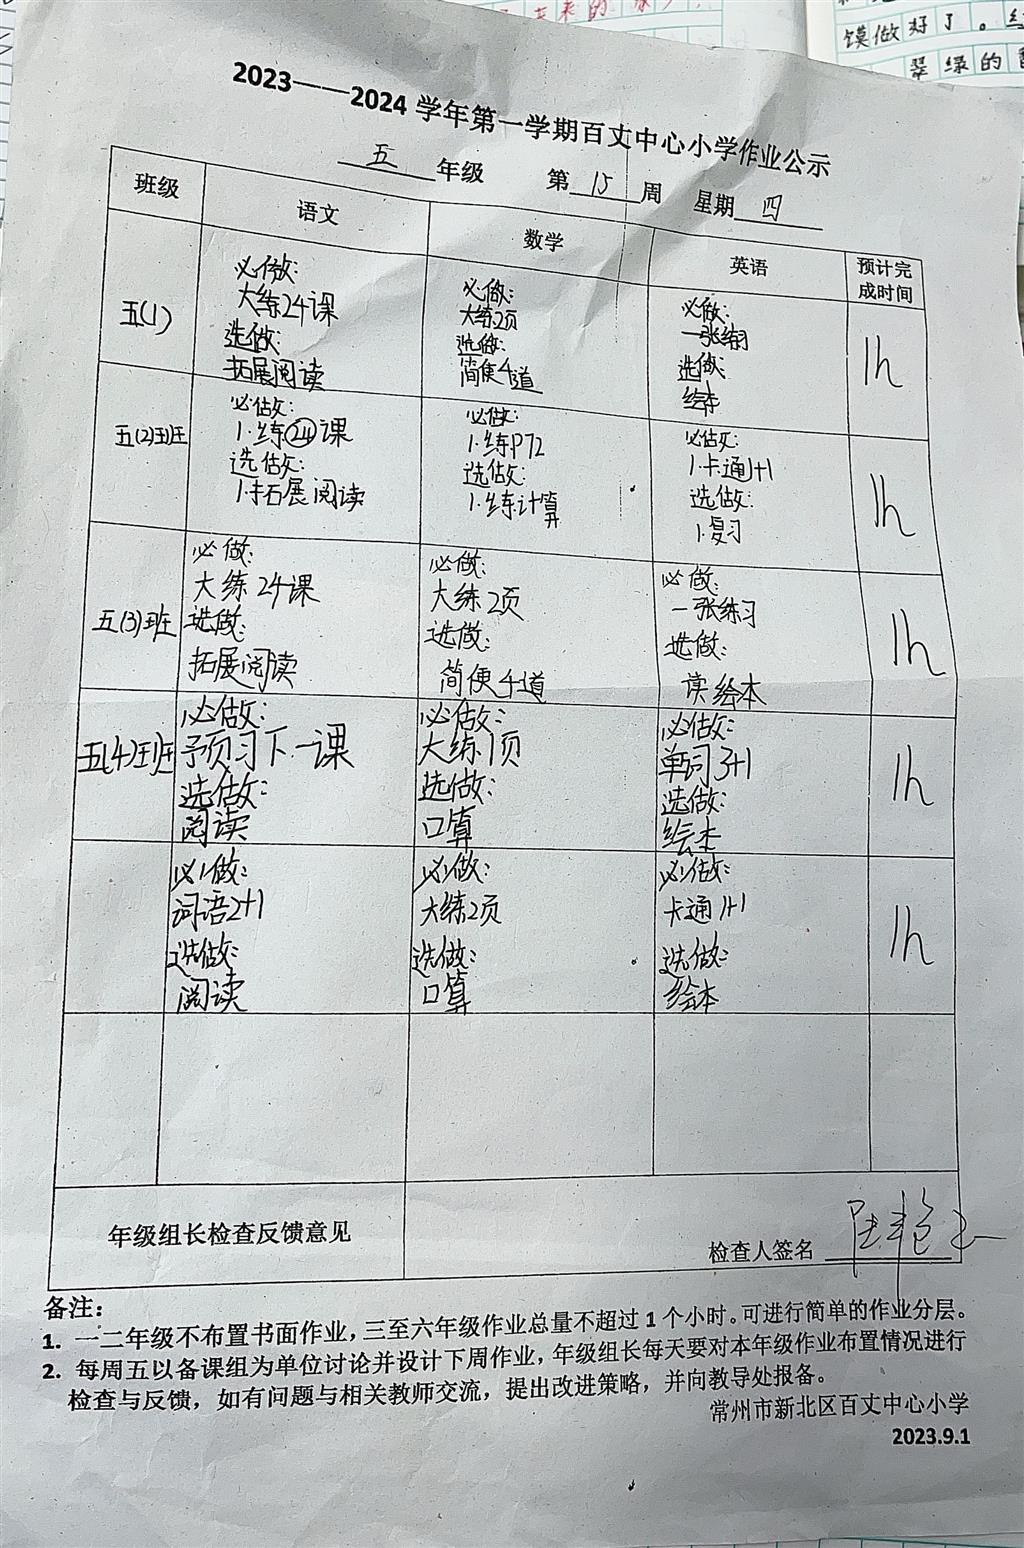 馍做好了。
翠绿的
2023——2024 学年第一学期百丈中心小学作业公示
五 年级 第 15 周 星期 四
班级 语文 数学 英语 预计完成时间
五(1)
必做:
大练24课
选做:
拓展阅读
必做:
大练2页
选做:
简便4道
必做:
一张练习
选做:
绘本
1h
五(2)班
必做:
1.练24课
选做:
1.拓展阅读
必做:
1.练P72
选做:
1.练计算
必做:
1.卡通1+1
选做:
1.复习
1h
五(3)班
必做:
大练24课
选做:
拓展阅读
必做:
大练2页
选做:
简便4道
必做:
一张练习
选做:
读绘本
1h
五(4)班
必做:
预习下一课
选做:
阅读
必做:
大练1页
选做:
口算
必做:
单词3+1
选做:
绘本
1h
必做:
词语2+1
选做:
阅读
必做:
大练2页
选做:
口算
必做:
卡通1+1
选做:
绘本
1h
年级组长检查反馈意见
检查人签名
备注:
1. 一二年级不布置书面作业，三至六年级作业总量不超过 1 个小时。可进行简单的作业分层。
2. 每周五以备课组为单位讨论并设计下周作业，年级组长每天要对本年级作业布置情况进行
检查与反馈，如有问题与相关教师交流，提出改进策略，并向教导处报备。
常州市新北区百丈中心小学
2023.9.1